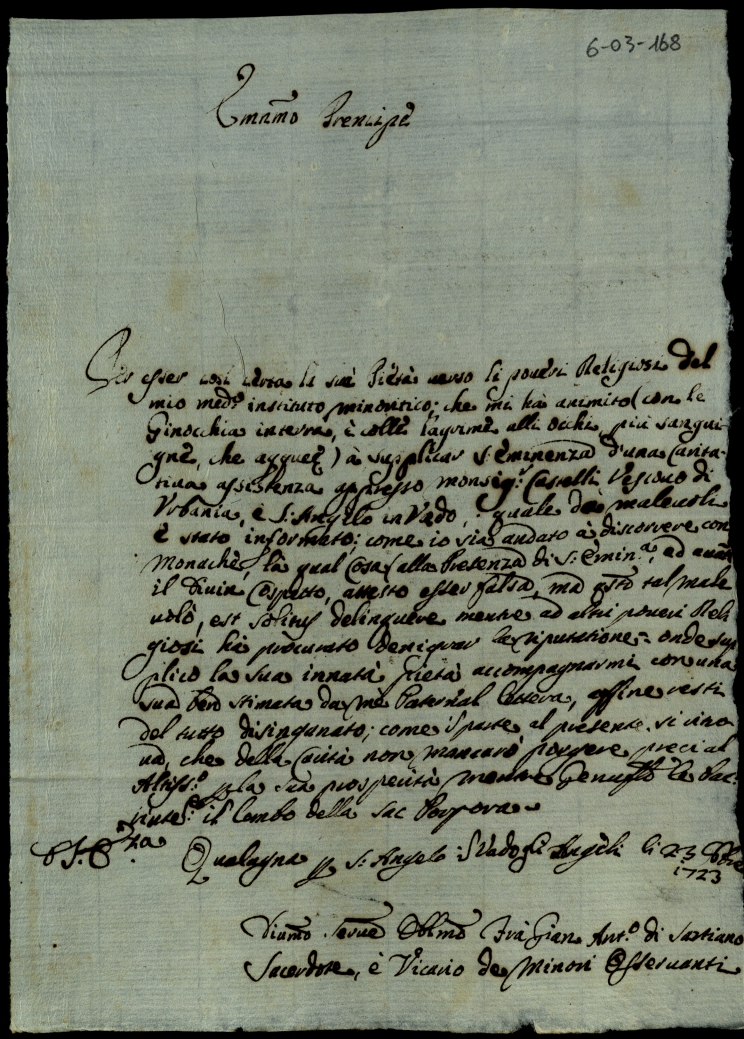 6-03-168
Emin̄mo Prencipe
Per esser così certa la sua Pietà verso li poveri Religiosi del
mio med.º instituto minoritico; che mi hà animito (con le
Ginocchia in terra, è colle lagrime alli occhi, più sangui-
gne, che acquee) à supplicar S: eminenza d'una carita-
tiva assistenza appresso monsig.r Castelli Vescovo di
Urbania, è S: Angelo in Vado, quale da malevoli
è stato informato; come io sia andato à discorrere con
monache, la qual cosa (alla Presenza di S: Emin.a, ed avanti
il Divin Cospetto, attesto esser falsa, mà q̄sto tal male
volo, est solitus delinquere mentre ad altri poveri Reli
giosi hà procurato denigrar la riputatione: onde sup
plico la sua innata pietà accompagnarmi con una
sua ben stimata da me Paternal lettera, affine resti
del tutto disingannato; come si parte al presente si ritro
va, che della carità non mancarò porgere preci al
Altiss.º p la sua prosperità mentre Genuflo le bac:
il lembo della sac Porpora
D S: E.za
Qualagna p S: Angelo: S Vado gli Angeli li 23
1723
Divmo Serve Oblmo Frà Gian Ant.º di Sartiano
Sacerdote, è Vicario de Minori Osservanti